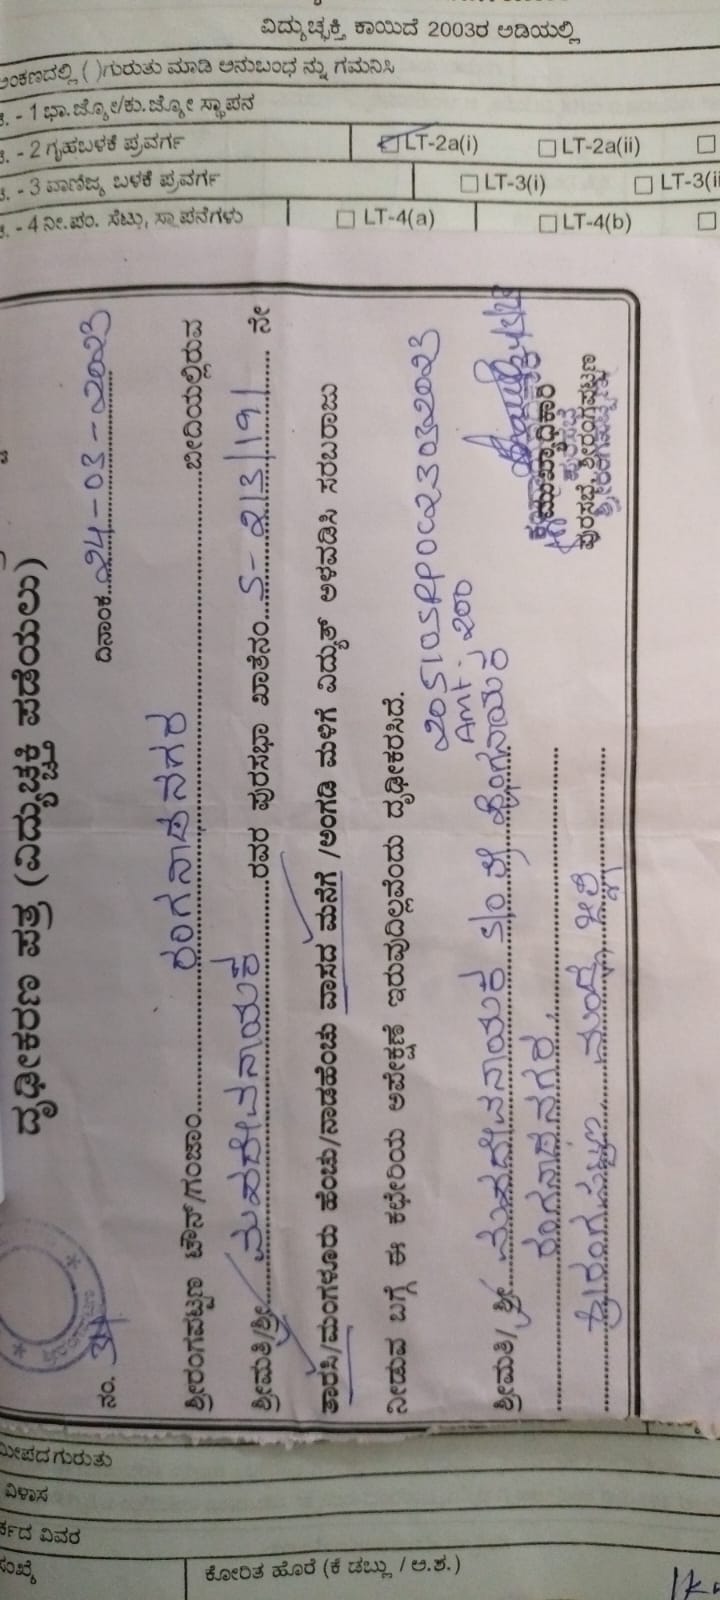 ವಿದ್ಯುಚ್ಛಕ್ತಿ ಕಾಯಿದೆ 2003ರ ಅಡಿಯಲ್ಲಿ
ಅಂಕಣದಲ್ಲಿ ( )ಗುರುತು ಮಾಡಿ ಅನುಬಂಧ ನ್ನು ಗಮನಿಸಿ
- 1 ಭಾ.ಜ್ಯೋ/ಕು.ಜ್ಯೋ ಸ್ಥಾಪನ
- 2 ಗೃಹಬಳಕೆ ಪ್ರವರ್ಗ LT-2a(i) LT-2a(ii)
- 3 ವಾಣಿಜ್ಯ ಬಳಕೆ ಪ್ರವರ್ಗ LT-3(i) LT-3(ii
- 4 ನೀ.ಪಂ. ಸೆಟ್ಟು, ಸ್ಥಾಪನೆಗಳು LT-4(a) LT-4(b)
ದೃಢೀಕರಣ ಪತ್ರ (ವಿದ್ಯುಚ್ಛಕ್ತಿ ಪಡೆಯಲು)
ನಂ. 34 ದಿನಾಂಕ 24-03-2023
ಶ್ರೀರಂಗಪಟ್ಟಣ ಟೌನ್/ಗಂಜಾಂ ರಂಗನಾಥನಗರ ಬೀದಿಯಲ್ಲಿರುವ
ಶ್ರೀಮತಿ/ಶ್ರೀ ಮಹದೇವನಾಯಕ ರವರ ಪುರಸಭಾ ಖಾತೆನಂ. 5-213/191 ನೇ
ತಾರಸಿ/ಮಂಗಳೂರು ಹೆಂಚು/ನಾಡಹೆಂಚು ವಾಸದ ಮನೆಗೆ /ಅಂಗಡಿ ಮಳಿಗೆ ವಿದ್ಯುತ್ ಅಳವಡಿಸಿ ಸರಬರಾಜು
ನೀಡುವ ಬಗ್ಗೆ ಈ ಕಛೇರಿಯ ಅಪೇಕ್ಷಣೆ ಇರುವುದಿಲ್ಲವೆಂದು ದೃಢೀಕರಿಸಿದೆ.
20510SRPOC23032023
Amt: 200
ಶ್ರೀಮತಿ/ ಶ್ರೀ ಮಹದೇವನಾಯಕ S/o
ರಂಗನಾಥನಗರ,
ಶ್ರೀರಂಗಪಟ್ಟಣ ಮಂಡ್ಯ ಜಿಲ್ಲೆ
ಮುಖ್ಯಾಧಿಕಾರಿ
ಪುರಸಭೆ, ಶ್ರೀರಂಗಪಟ್ಟಣ
ಮೀಪದ ಗುರುತು
ವಿಳಾಸ
ರ್ಕದ ವಿವರ
ಸಂಖ್ಯೆ ಕೋರಿತ ಹೊರೆ (ಕೆ ಡಬ್ಲು / ಅ.ಶ.)